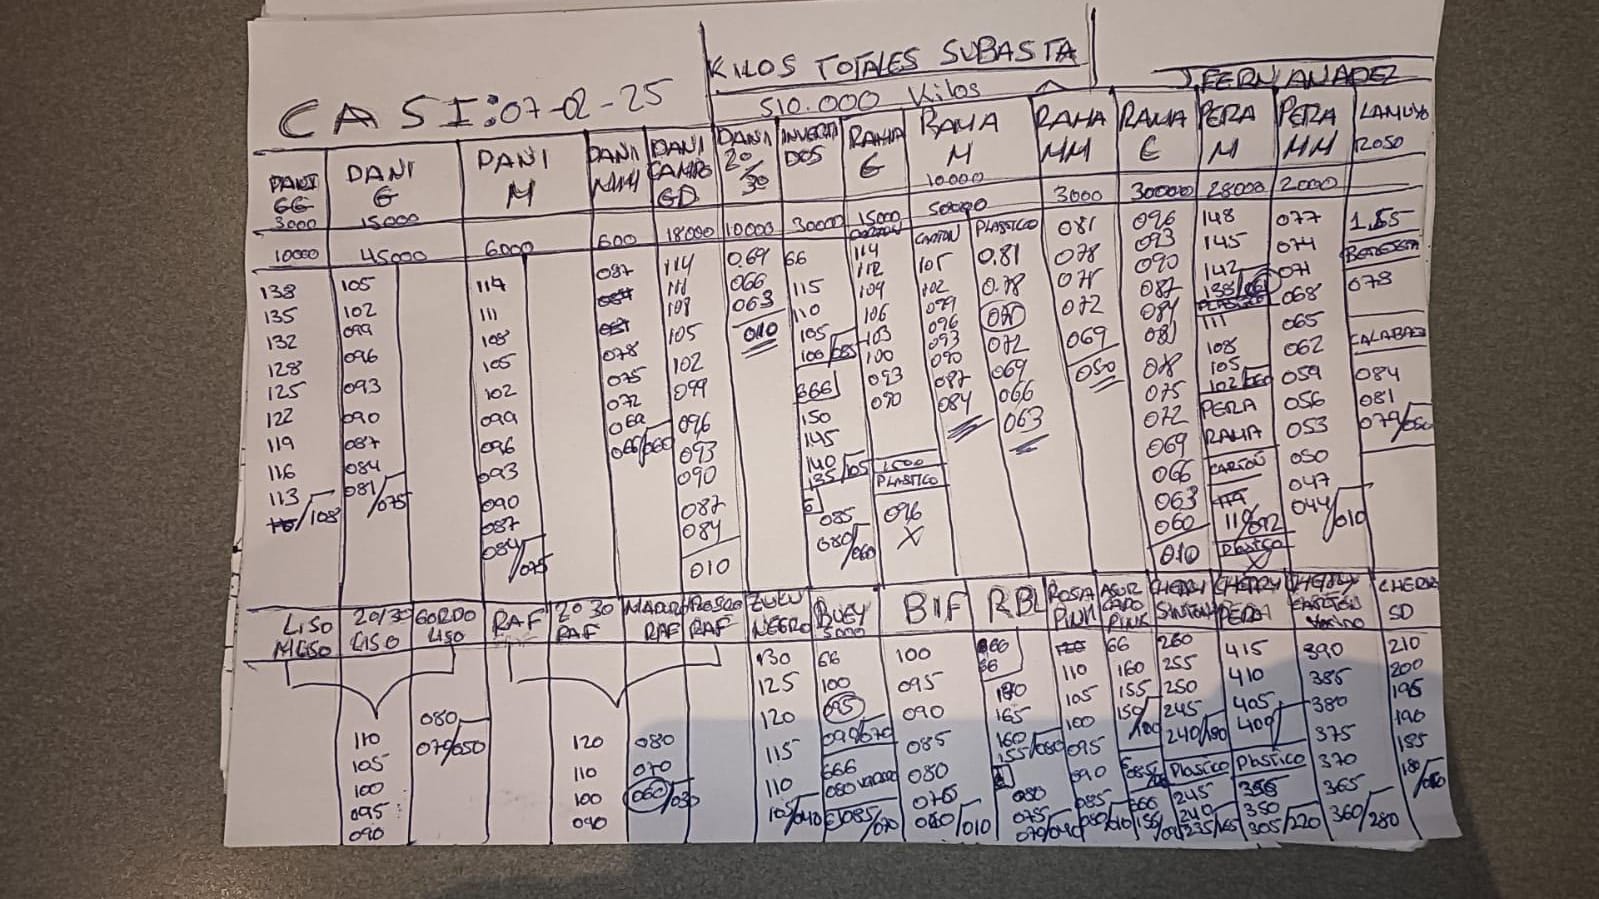 KILOS TOTALES SUBASTA
CASI: 07-02-25
510.000 Kilos
J.FERNANADEZ
DANI GG 3000
DANI G 15000
DANI M
DANI MM
DANI CAMPO GD
DANI 20/30
INVERTIDOS
RAMA G
RAMA M 10000
RAMA MM
RAMA C
PERA M
PERA MM
LAMUYO ROSO
10000 45000 6000 600 18000 10000 30000 15000 50000 3000 30000 28000 2000
138
135
132
128
125
122
119
116
113
/108
105
102
099
096
093
090
087
084
081/075
114
111
108
105
102
099
096
093
090
087
084/075
087
078
075
072
069
066/060
114
111
108
105
102
099
096
093
090
087
084
010
0,69
066
063
010
66
115
110
105
100/085
666
150
145
140
135/105
G
085
080/060
CARTON
114
112
109
106
103
100
093
090
1500
PLASTICO
096
X
CARTON
105
102
099
096
093
090
087
084
PLASTICO
0.81
0.78
072
069
066
063
081
078
075
072
069
050
096
093
090
087
084
081
078
075
072
069
066
063
060
010
148
145
142
138/
PLASTICO
111
108
105
102/
PERA
RAMA
CARTON
Plastico
X
077
074
071
068
065
062
059
056
053
050
047
044/010
1,55
078
084
081
079/050
LISO MLISO
20/30 LISO
GORDO LISO
RAF
20 30 RAF
MADURO RAF
ROSCO RAF
ZULU NEGRO
BUEY 3000
BIF
RBL
ROSA PINK
ASURCADO PINK
CHERRY SINTON
CHERRY PERA
CHERRY CARTON
CHERRY SD
110
105
100
095
090
080
079/050
120
110
100
090
080
070
060/030
130
125
120
115
110
105/040
66
100
095
090/070
666
080
085/070
100
095
090
085
080
075
/010
666
66
165
160
155/080
080
075
079/040
110
105
100
095
090
085
080/010
66
160
155
150/100
666
260
255
250
245
240/190
Plastico
245
240
235/165
415
410
405
400/
Plastico
350
305/220
390
385
380
375
370
365
360/280
210
200
195
190
185
180/